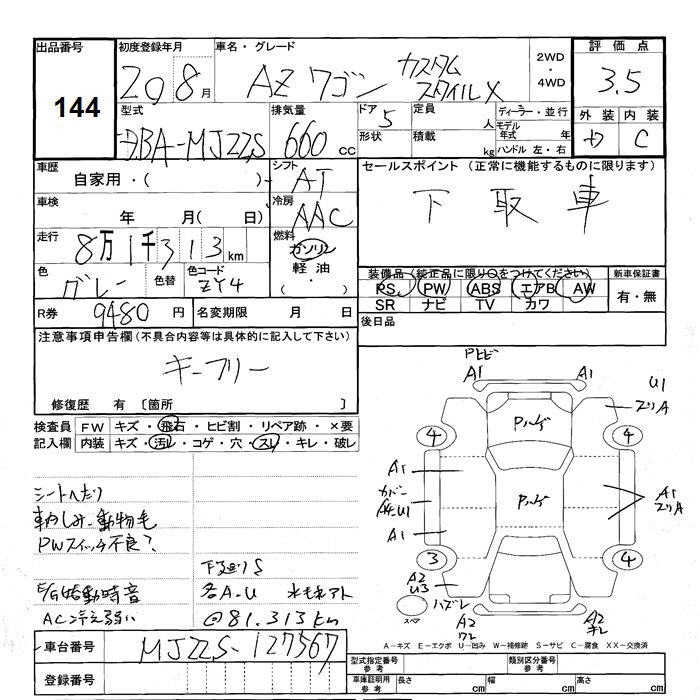 出品番号 初度登録年月 車名・グレード 2WD ・ 4WD 評価点
144 20 8月 AZワゴン カスタム スタイルX 3.5
型式 排気量 ドア 5 定員 人 ディーラー・並行 外装 内装
DBA-MJ22S 660cc 形状 積載 kg モデル年式 年 C
ハンドル 左・右
車歴 シフト セールスポイント(正常に機能するものに限ります)
自家用・( ) AT 下取車
車検 年 月( 日) 冷房 AAC
走行 8万1千313km 燃料 ガソリン
軽油
( ・ )
色 グレー 色替 色コード ZY4
装備品(純正品に限り○をつけてください) 新車保証書
PS PW ABS エアB AW 有・無
SR ナビ TV カワ
R券 9480円 名変期限 月 日 後日品
注意事項申告欄(不具合内容等は具体的に記入して下さい)
キーフリー
修復歴 有 [箇所 ]
検査員 FW キズ・飛石・ヒビ割・リペア跡・×要
記入欄 内装 キズ・汚レ・コゲ・穴・スレ・キレ・破レ
シートへたり
動物毛
PWスイッチ不良?
下廻りS
E/G始動時音 各A.U 水モレアト
AC冷え弱い @81.313km
車台番号 MJ22S-127567
登録番号
Pトビ
A1 A1 U1
スリA
Pハゲ
4 4
A1
カバー
A4.U1
Pハゲ
A1
スリA
A1
3 4
A2
U3
ハズレ
スペア
A2
ワレ
A2
キレ
A-キズ E-エクボ U-凹み W-補修跡 S-サビ C-腐食 XX-交換済
型式指定番号 参考 類別区分番号 参考
車庫証明用 参考 長さ cm 幅 cm 高さ cm